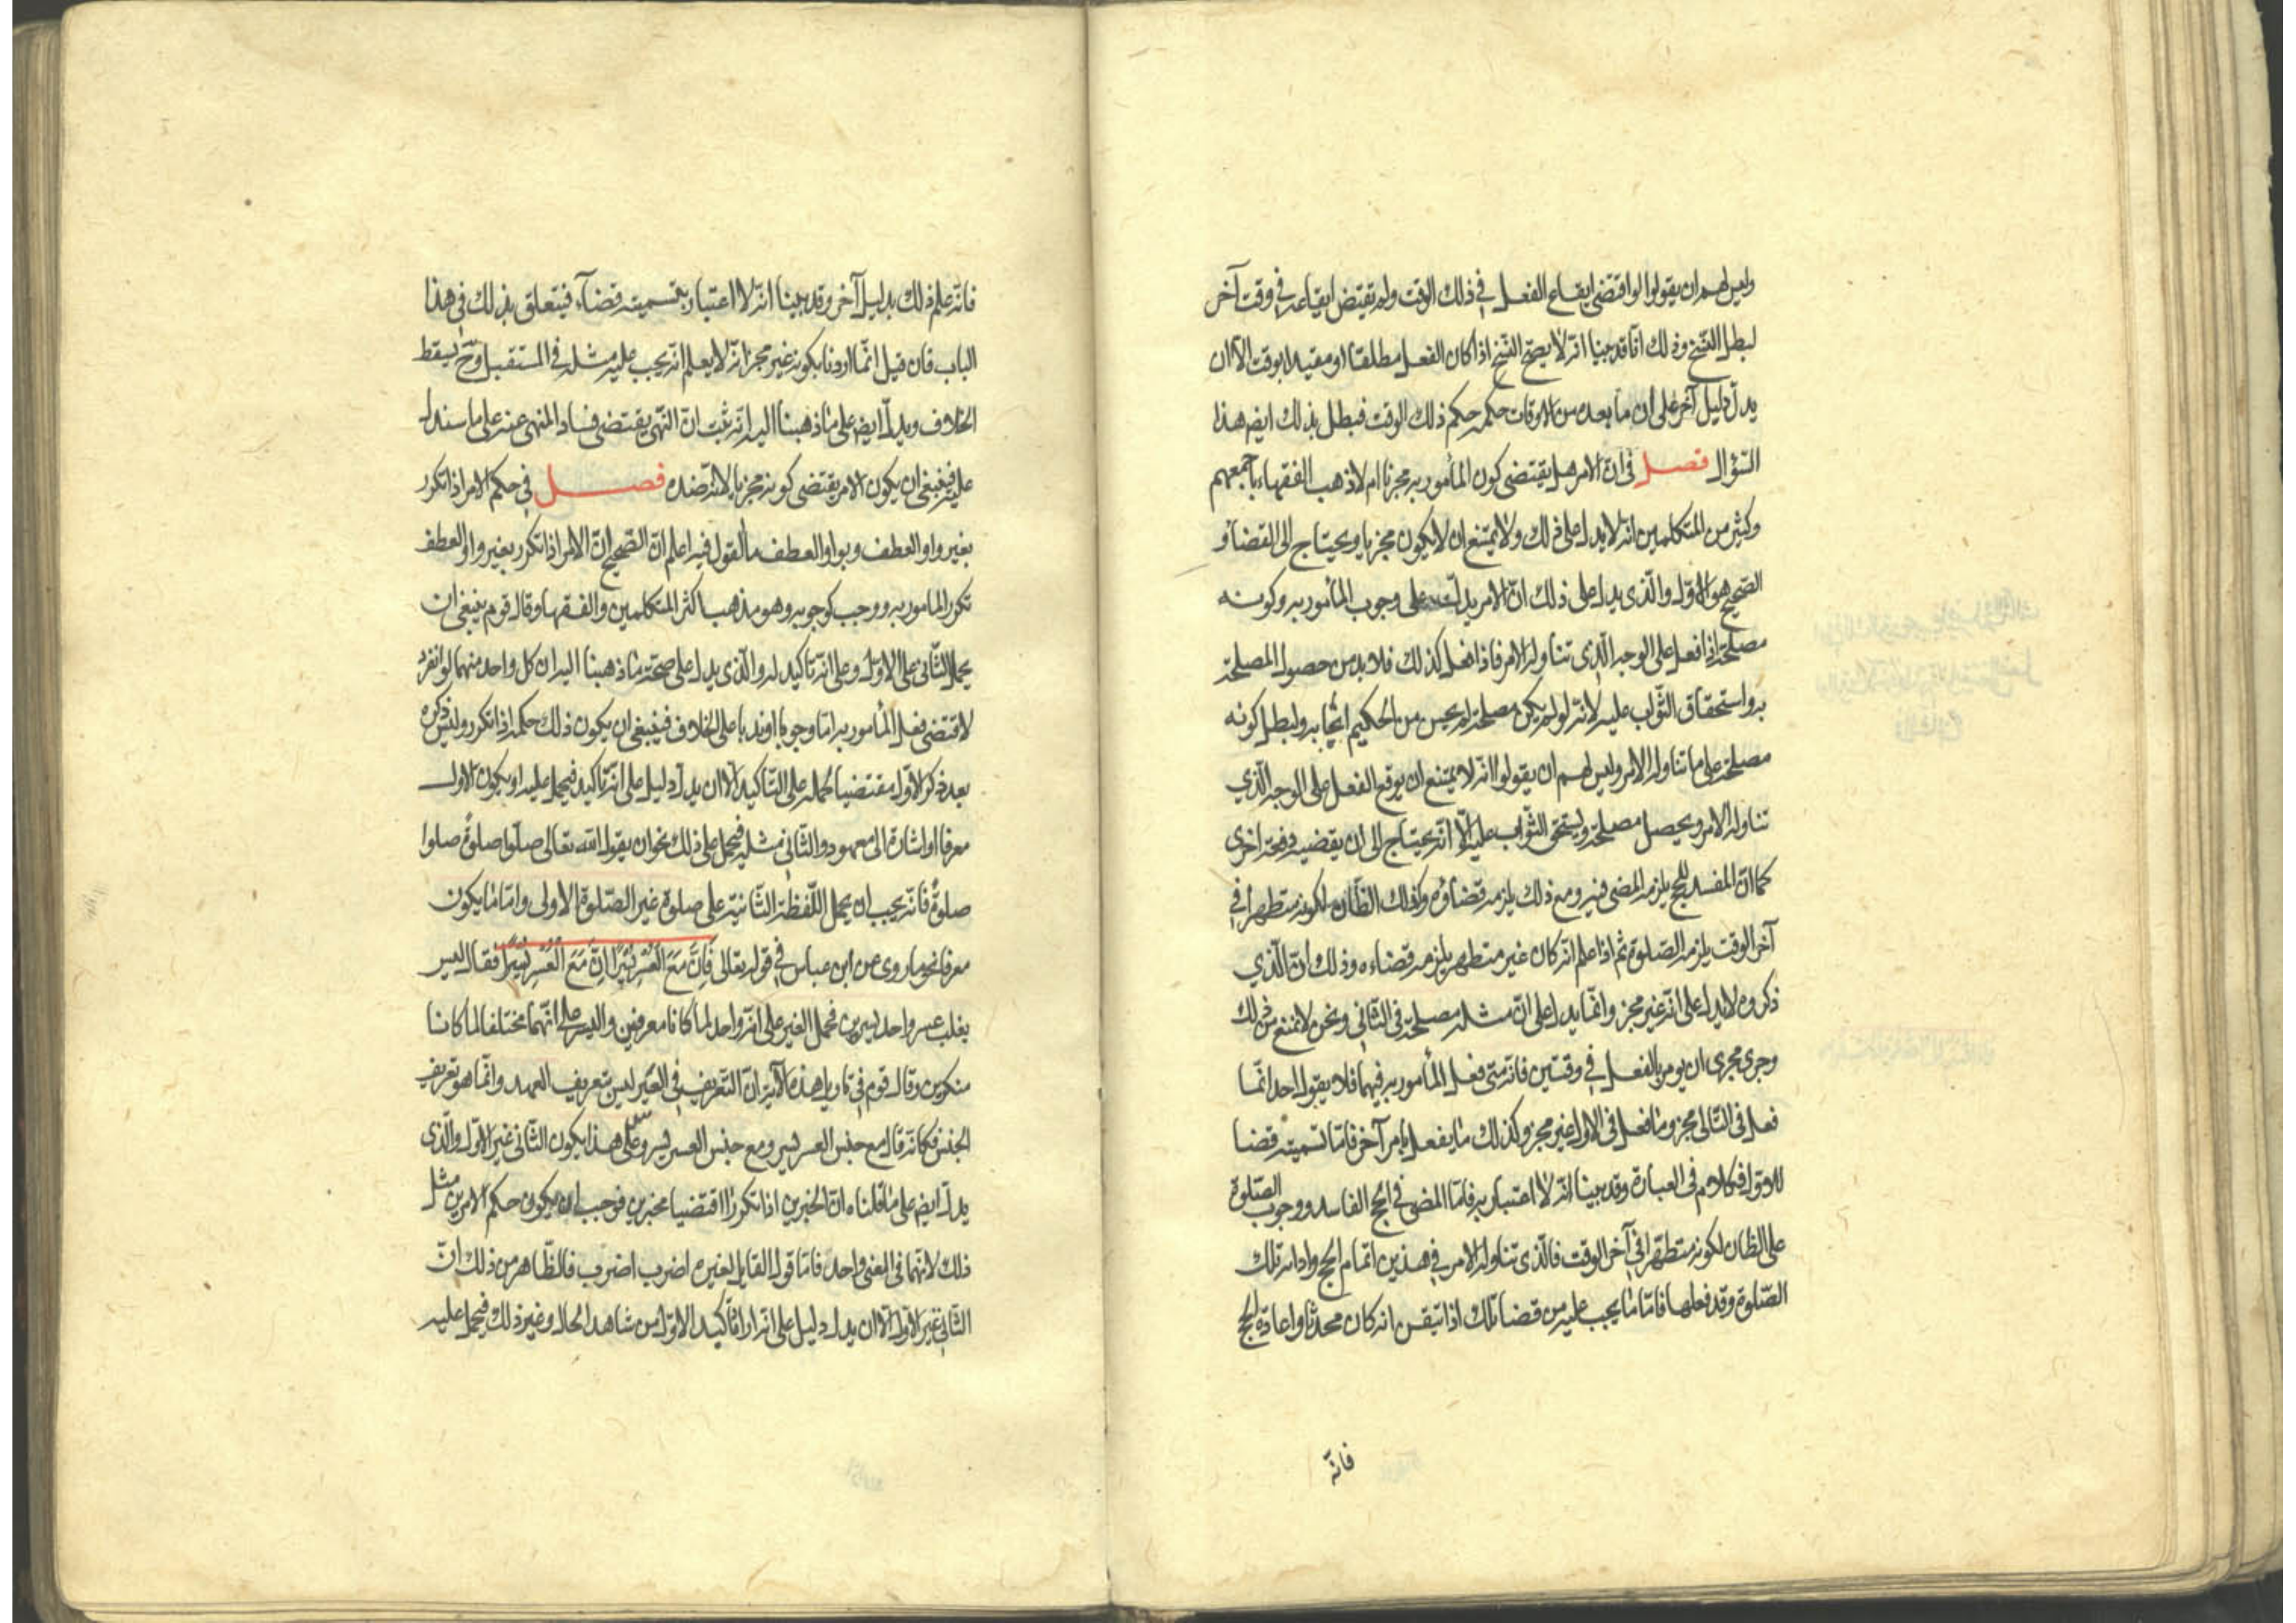 وليس لهم ان يقولوا لو اقتضى ايقاع الفعل في ذلك الوقت ولم تقتض ايقاعه في وقت آخر
لبطل النسخ وذلك انّا قد بينا انّه لا يصحّ النسخ اذا كان الفعل مطلقا او مقيدا بوقت الّا ان
يدلّ دليل آخر على ان ما بعده من الاوقات حكمه حكم ذلك الوقت فبطل بذلك ايضا هذا
السّؤال فصل في انّ الامر هل يقتضى كون المأمور به مجزيا ام لا ذهب الفقهاء باجمعهم
وكثير من المتكلمين انه لا يدل على ذلك ولا يمتنع ان لا يكون مجزيا ويحتاج الى القضا و
الصّحيح هو الاوّل والّذى يدل على ذلك انّ الامر يدل على وجوب المأمور به وكونه
مصلحة اذا فعل على الوجه الّذى تناوله الامر فاذا فعل كذلك فلا بد من حصول المصلحة
به واستحقاق الثّواب عليه لانّه لو لم يكن مصلحة لم يحسن من الحكيم ايجابه ولبطل كونه
مصلحة على ما تناوله الامر وليس لهم ان يقولوا انّه لا يمتنع ان يوقع الفعل على الوجه الّذي
تناوله الامر ويحصل مصلحة ويستحق الثّواب عليه الّا انّه يحتاج الى ان يقضيه دفعة اخرى
كما انّ المفسد للحج يلزمه المضى فيه ومع ذلك يلزمه قضاؤه وكذلك الظّان لكونه متطهرا في
آخر الوقت يلزمه الصّلوة ثم اذا علم انّه كان غير متطهر يلزمه قضاءه وذلك انّ الّذي
ذكروه لا يدل على انّه غير مجز وانّما يدل على انّ مثله مصلحة في الثاني ونحن لا نمنع من ذلك
وجرى مجرى ان يومر بالفعل في وقتين فانّه متى فعل المأمور به فيهما فلا يقول احد انّما
فعل في الثّاني مجز وما فعل في الاول غير مجز وكذلك ما يفعل بامر آخر فامّا تسميته قضا
للاوّل فكلام في العبارة وقد بينا انّه لا اعتبار به فامّا المضى في الحج الفاسد ووجوب الصّلوة
على الظان لكونه متطهّرا في آخر الوقت فالّذى تناوله الامر في هذين اتمام الحج واداء تلك
الصّلوة وقد فعلها فامّا ما يجب عليه من قضا تلك اذا تيقن انه كان محدثا واعادة الحج
فانّه
فانّه علم ذلك بدليل آخر وقد بينا انّه لا اعتبار بتسميته قضآء فيتعلق بذلك في هذا
الباب فان قيل انّما اردنا بكونه غير مجز انّه لا يعلم انّه يجب عليه مثله في المستقبل وح يسقط
الخلاف ويدلّ ايضا على ما ذهبنا اليه انّه ثبت انّ النّهى يقتضى فساد المنهى عنه على ما سندل
عليه فينبغى ان يكون الامر يقتضى كونه مجزيا لانّه ضده فصل في حكم الامر اذا تكرر
بغير واو العطف وبواو العطف ما القول فيه اعلم انّ الصّحيح انّ الامر اذا تكرر بغير واو العطف
تكرر المامور به ووجب كوجوبه وهو مذهب اكثر المتكلمين والفقها وقال قوم ينبغى ان
يحمل الثّانى على الاوّل وعلى انّه تاكيد له والّذى يدل على صحّة ما ذهبنا اليه ان كل واحد منهما لو انفرد
لاقتضى فعل المأمور به امّا وجوبا او ندبا على الخلاف فينبغى ان يكون ذلك حكمه اذا تكرر وليس ذكره
بعد ذكر الاوّل مقتضيا لحمله على التّاكيد الّا ان يدلّ دليل على انّه تاكيد فيحمل عليه او يكون الاول
معرفا او اشارة الى معهود والثّانى مثله فيحمل على ذلك نحو ان يقول الله تعالى صلّوا صلوةً صلوا
صلوةً فانّه يجب ان يحمل اللّفظة الثّانية على صلوة غير الصّلوة الاولى وامّا ما يكون
معرفا نحو ما روى عن ابن عباس في قوله تعالى فَاِنَّ مَعَ الْعُسْرِ يُسْرًا اِنَّ مَعَ الْعُسْرِ يُسْرًا فقال ليس
يغلب عسر واحد يسرين فحمل العسر على انّه واحد لما كانا معرفين واليسر على انّهما مختلفا لما كانا
منكرين وقال قوم في تاويل هذه الآية انّ التعريف في العسر ليس بتعريف العهد وانّما هو تعريف
الجنس فكانّه قال مع جنس العسر يسر ومع جنس العسر يسر وعلى هذا يكون الثّانى غير الاوّل والّذى
يدلّ ايضا على ما قلناه انّ الخبرين اذا تكررا اقتضيا مخبرين فوجب ان يكون حكم الامرين مثل
ذلك لانهما في المعنى واحد فامّا قول القايل لغيره اضرب اضرب فالظّاهر من ذلك انّ
الثّاني غير الاوّل الّا ان يدل دليل على انّه اراد تأكيد الاوّل من شاهد الحال وغير ذلك فيحمل عليه